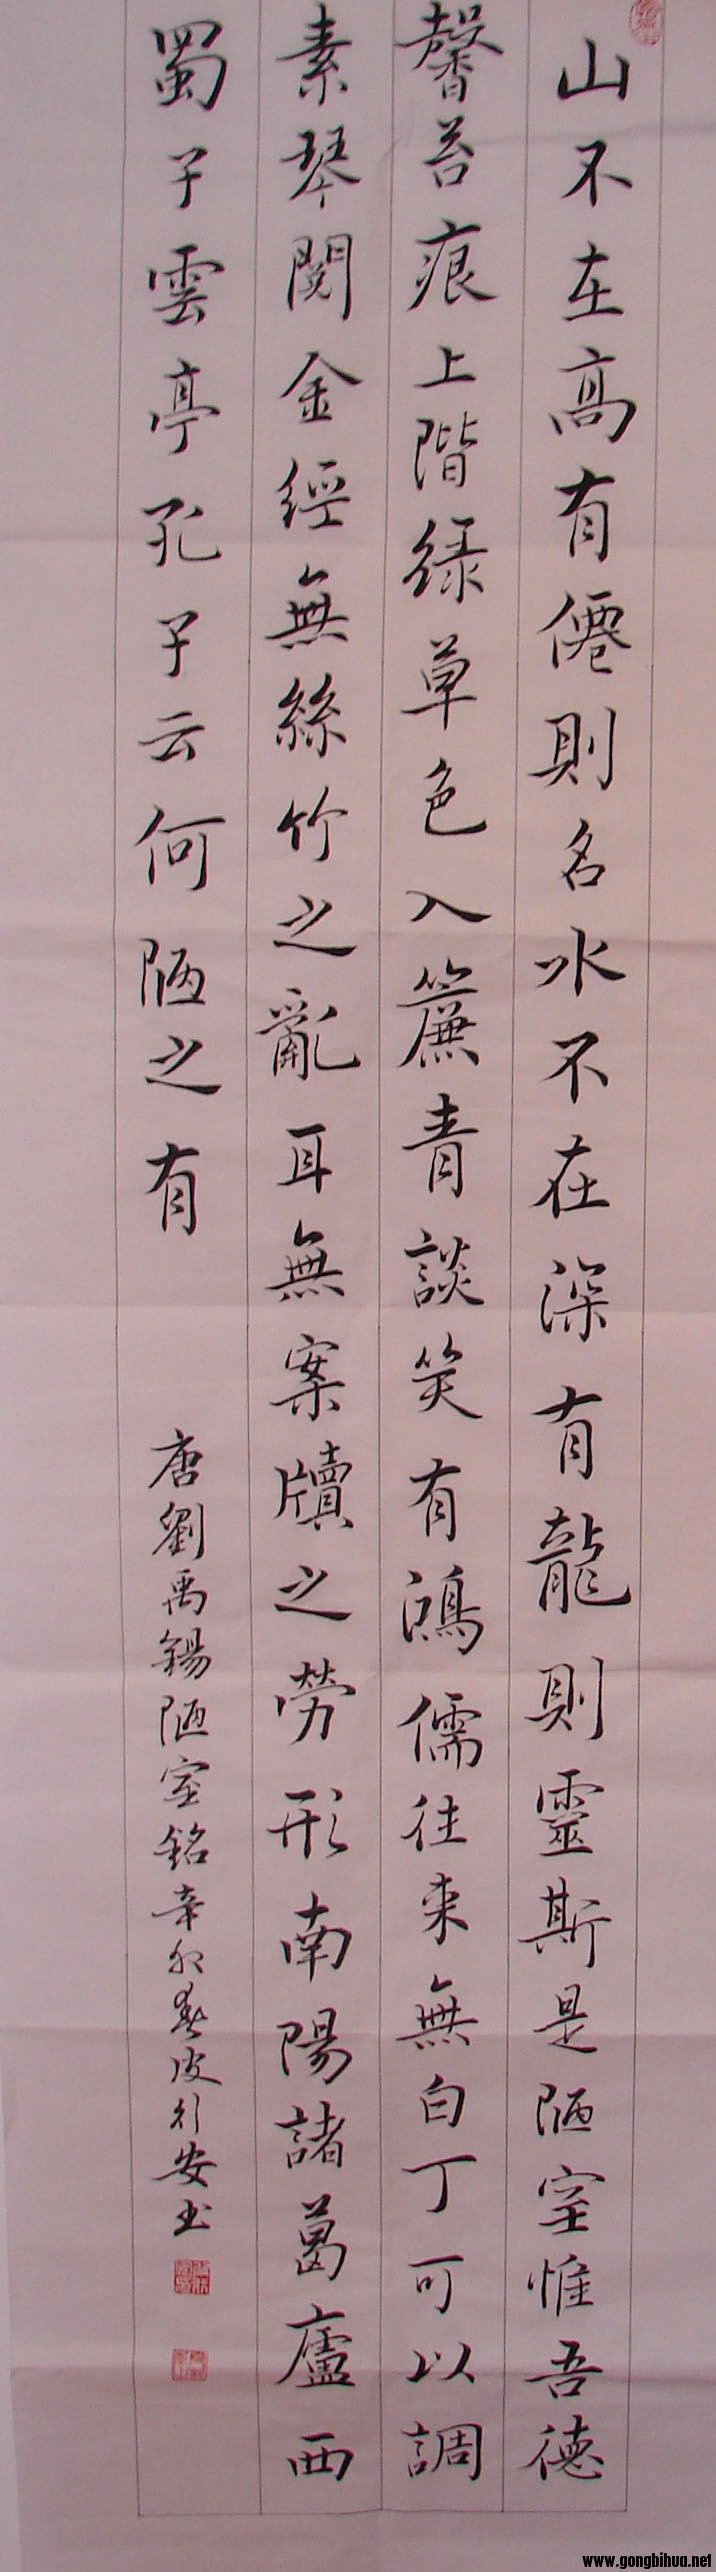 山不在高有僊則名水不在深有龍則靈斯是陋室惟吾德
馨苔痕上階綠草色入簾青談笑有鴻儒往来無白丁可以調
素琴閱金經無絲竹之亂耳無案牘之勞形南陽諸葛廬西
蜀子雲亭孔子云何陋之有
唐劉禹錫陋室銘辛卯春皮行安书
www.gongbihua.net